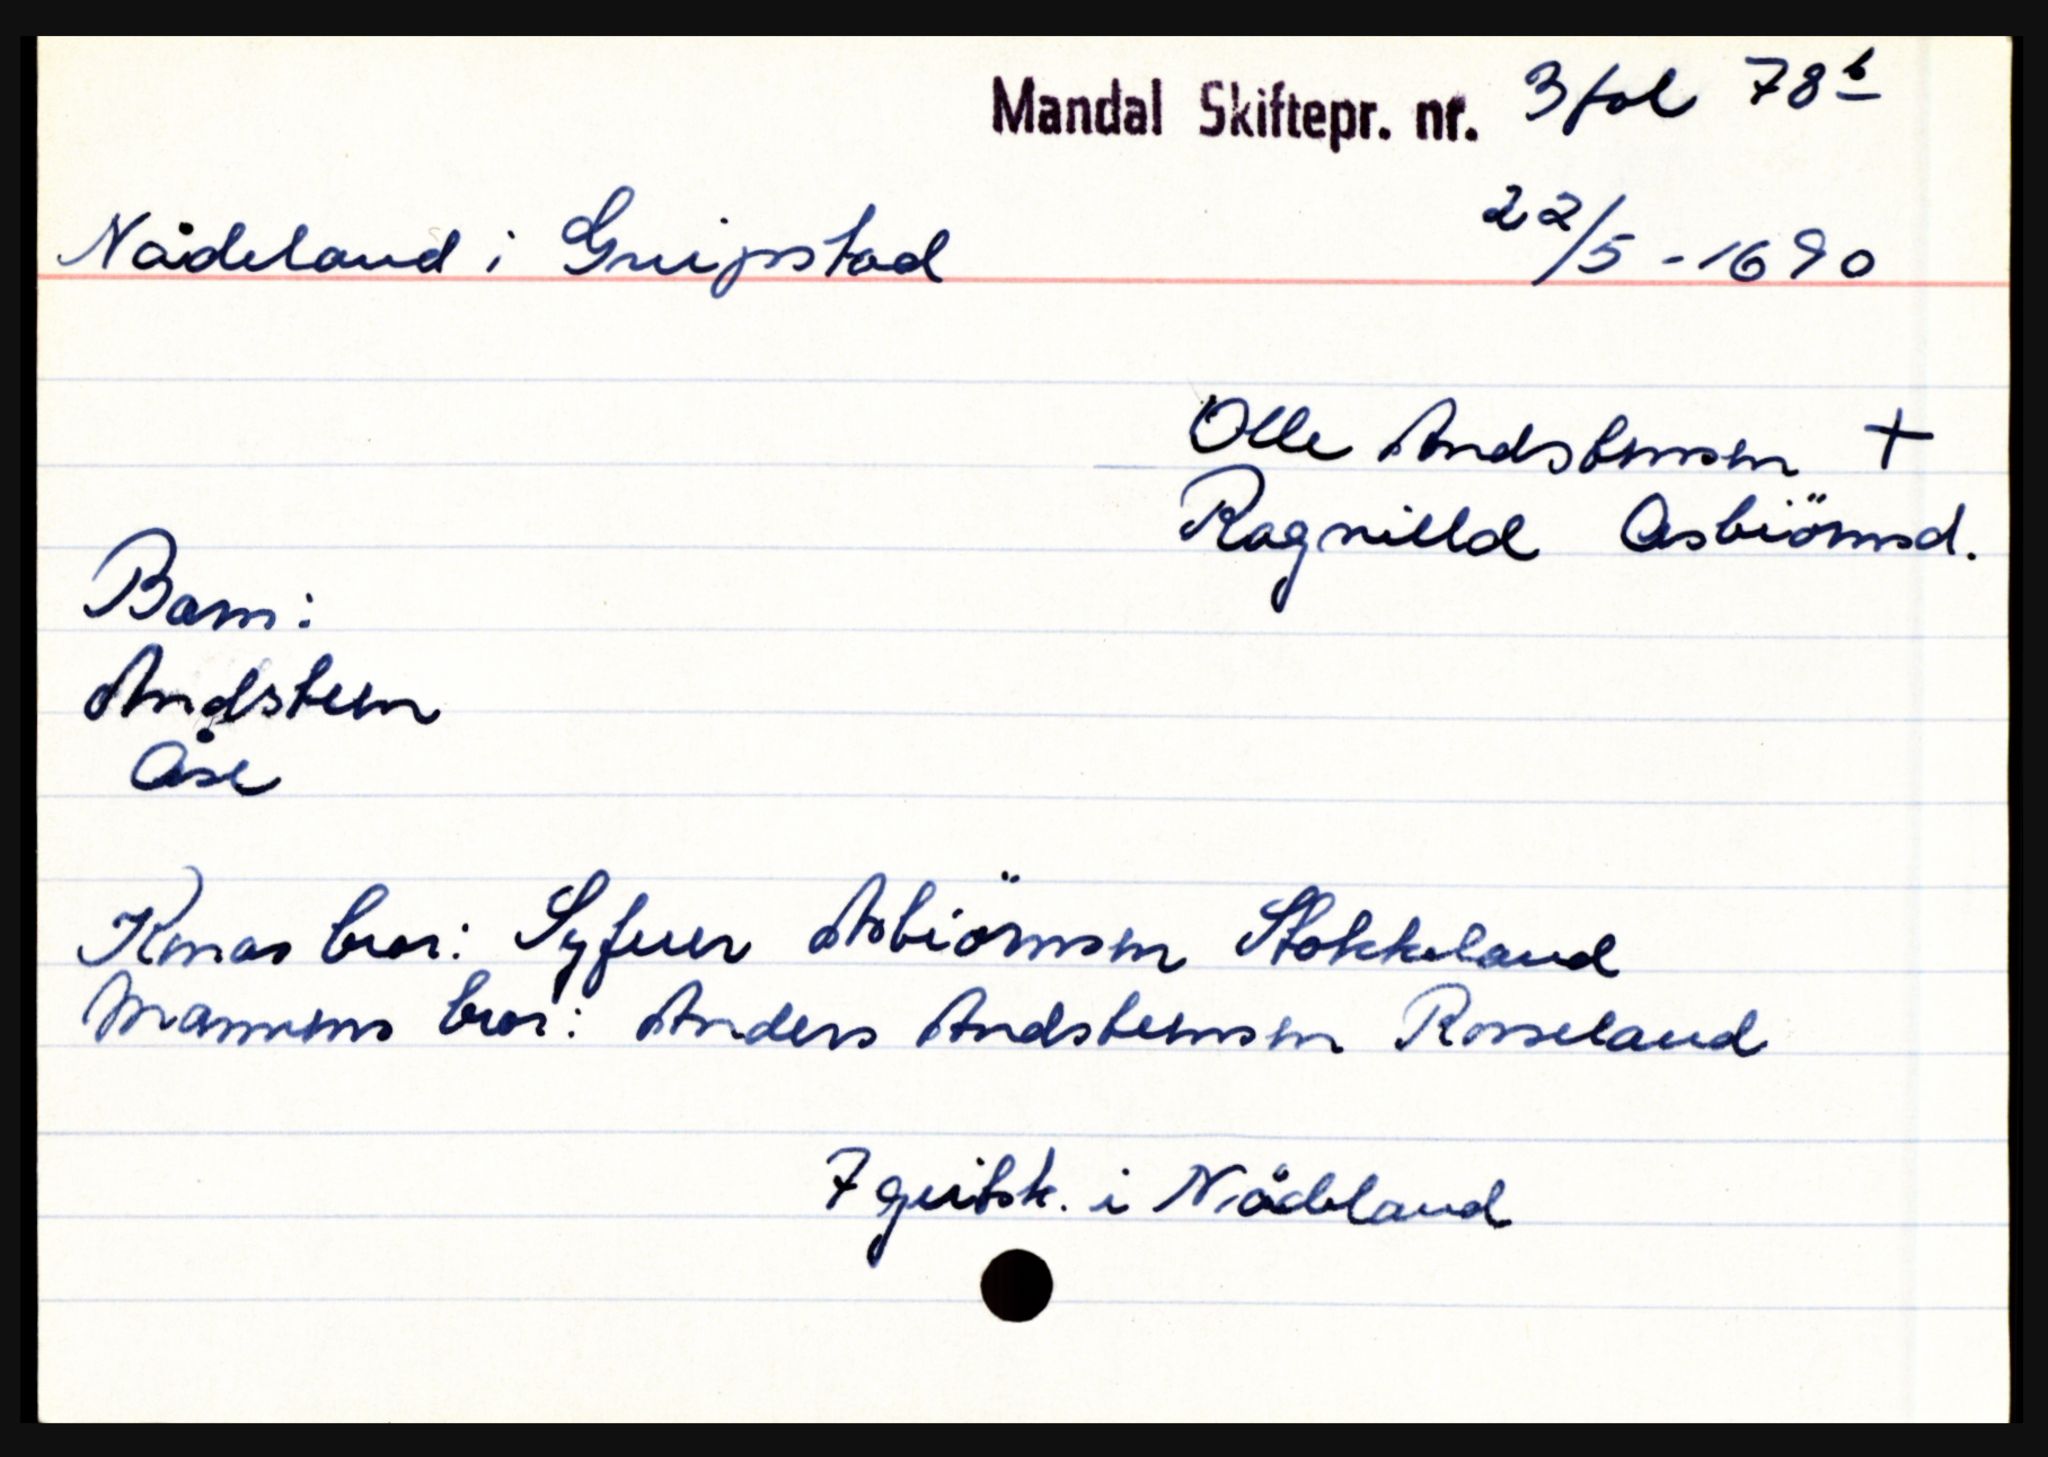 Mandal Skiftepr. nr. 3 fol 78 b
Nådeland i Greipstad 22/5-1690
Olle Andstensen +
Ragnilld Asbiörnsd.
Barn:
Andsten
Åse
Konas bror: Syfuer Asbiörnsen Stokkeland
Mannens bror: Anders Andstensen Rosseland
7 geitsk. i Nådeland